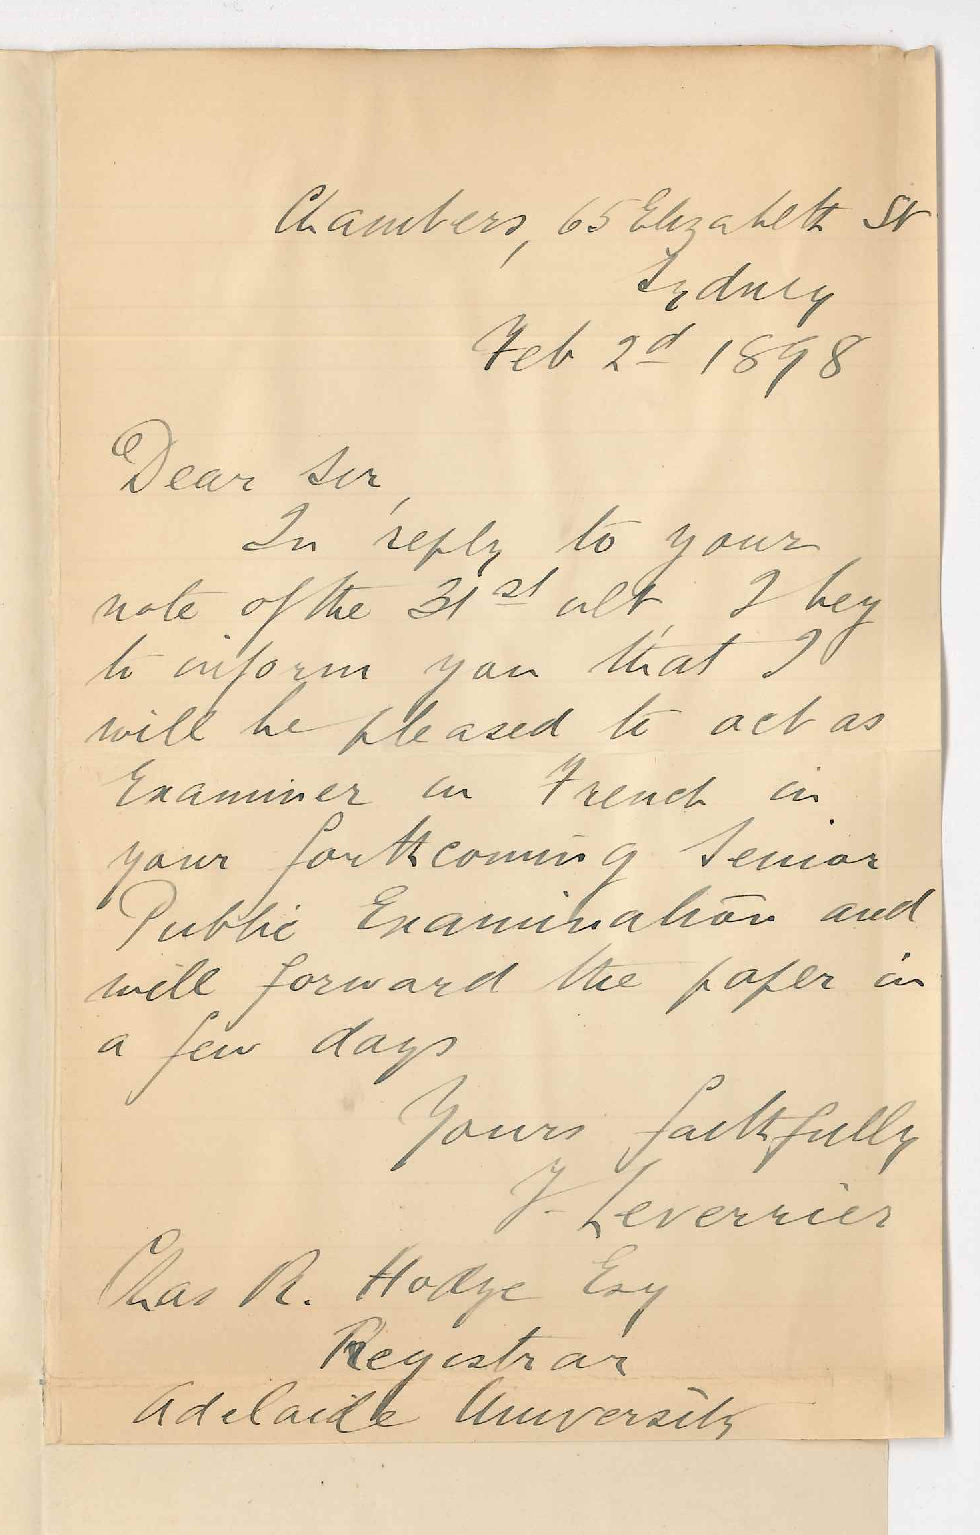 Chambers, 65 Elizabeth St
Sydney
Feb 2d 1898
Dear Sir,
In reply to your
note of the 31st ult, I beg
to inform you that I
will be pleased to act as
Examiner in French in
your forthcoming Senior
Public Examination and
will forward the paper in
a few days
Yours faithfully
F. Leverrier
Chas R. Hodge Esq
Registrar
Adelaide University